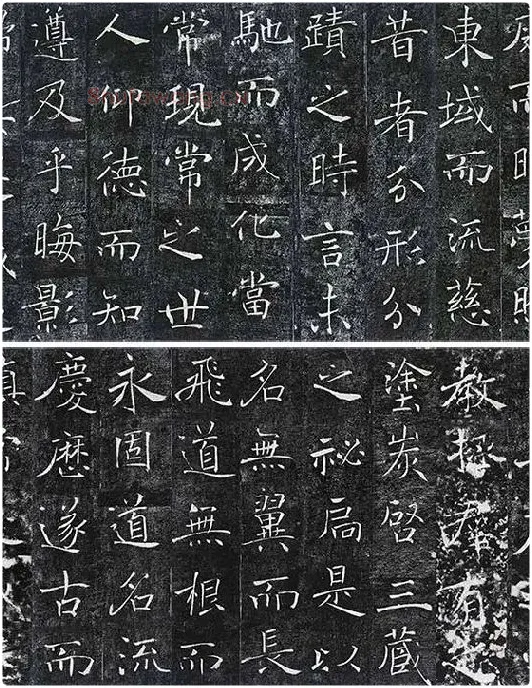 東域而流慈
昔者分形分
蹟之時言未
馳而成化當
常現常之世
人仰德而知
遵及乎晦影
教拯群有之
塗炭啓三藏
之祕扃是以
名無翼而長
飛道無根而
永固道名流
慶歷遂古而